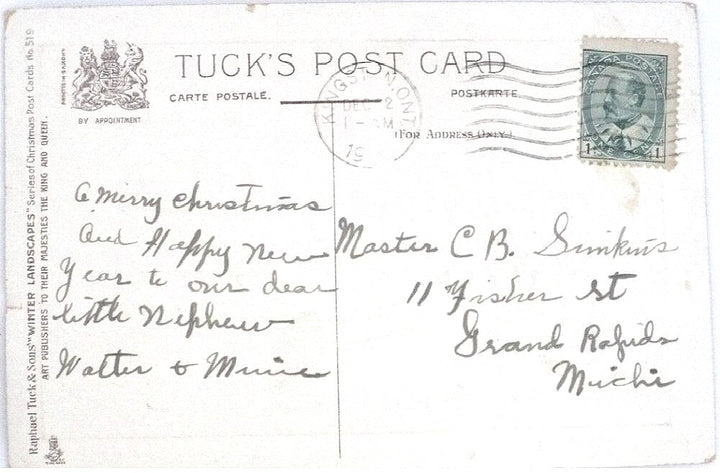 TUCK'S POST CARD
CARTE POSTALE.
POSTKARTE
(For Address Only.)
BY APPOINTMENT
Raphael Tuck & Sons' "WINTER LANDSCAPES" Series of Christmas Post Cards No 519
ART PUBLISHERS TO THEIR MAJESTIES THE KING AND QUEEN.
KINGSTON, ONT.
DEC 2
AM
19
CANADA POSTAGE
1 1
A Merry Christmas
and Happy New
Year to our dear
little Nephew
Walter & Minnie
Master C B. Simkins
11 Fisher St
Grand Rapids
Michi